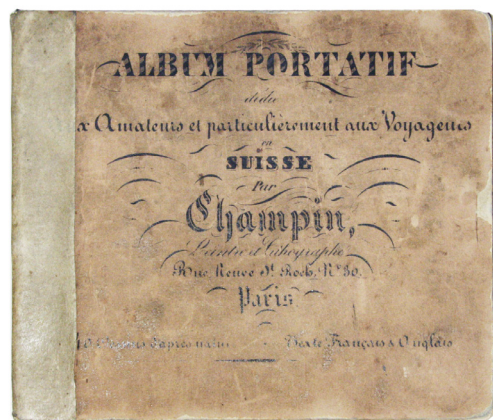 ALBUM PORTATIF
dédié
x Amateurs et particulièrement aux Voyageurs
en
SUISSE
Par
Champin,
Peintre et Lithographe
Rue Neuve St. Roch, No. 30.
Paris
d'après nature Texte Français & Anglais